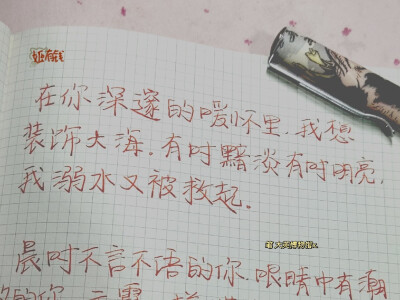 在你深邃的暖怀里.我想
装饰大海.有时黯淡有时明亮,
我溺水又被救起.
大英博物馆
晨时不言不语的你.眼睛中有潮
的你